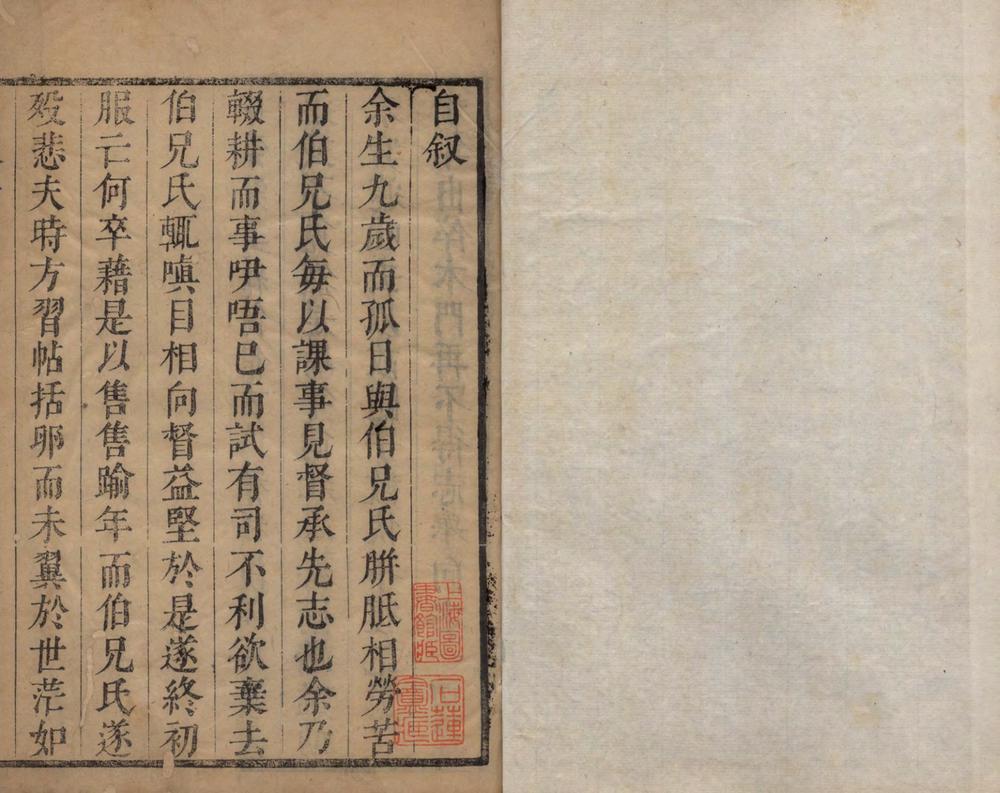 自叙
余生九歲而孤日與伯兄氏胼胝相勞苦
而伯兄氏每以課事見督承先志也余乃
輟耕而事吚唔巳而試有司不利欲棄去
伯兄氏輒嗔目相向督益堅於是遂終初
服亡何卒藉是以售售踰年而伯兄氏遂
殁悲夫時方習帖括卵而未翼於世茫如
上海圖
書館
石蓮